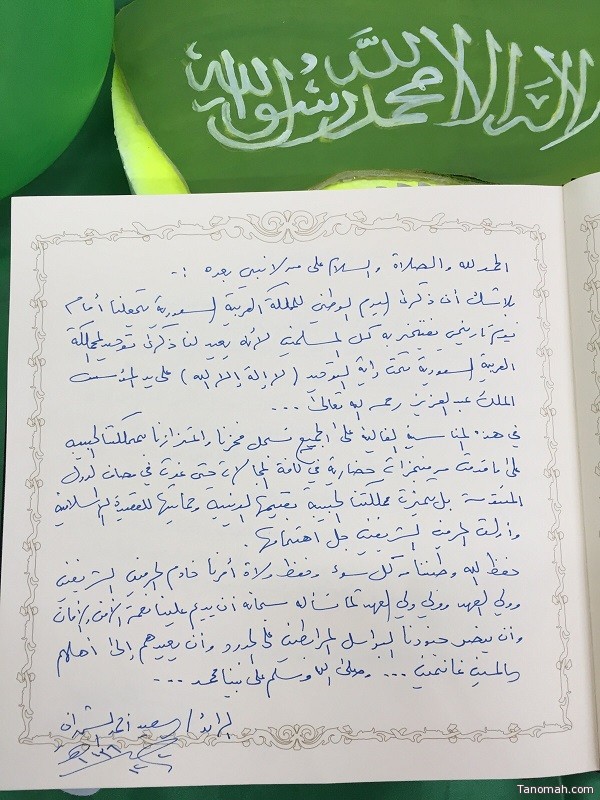 لا إله إلا الله محمد رسول الله
الحمد لله والصلاة والسلام على من لا نبي بعده :-
بلا شك أن ذكرى اليوم الوطني للمملكة العربية السعودية تجعلنا أمام
يوم تاريخي يفتخر به كل المسلمين لأنه يعيد لنا ذكرى توحيد المملكة
العربية السعودية تحت راية التوحيد (لا إله إلا الله) على يد المؤسس
الملك عبدالعزيز رحمه الله تعالى ...
في هذه المناسبة الغالية على الجميع نسجل فخرنا واعتزازنا بمملكتنا الحبيبة
على ما قدمت من منجزات حضارية في كافة المجالات حتى غدت في مصاف الدول
المتقدمة بل تميزت مملكتنا الحبيبة بقيمها الدينية وحمايتها للعقيدة الإسلامية
وأولت الحرمين الشريفين جل اهتمامها.
حفظ الله وطننا من كل سوء وحفظ ولاة أمرنا خادم الحرمين الشريفين
وولي العهد وولي ولي العهد كما نسأله سبحانه أن يديم علينا نعمة الأمن والأمان
وأن ينصر جنودنا البواسل المرابطين على الحدود وأن يعيدهم إلى أهلهم
سالمين غانمين ... وصلى الله وسلم على نبينا محمد ...
الرائد / سعيد أحمد
Tanomah.com